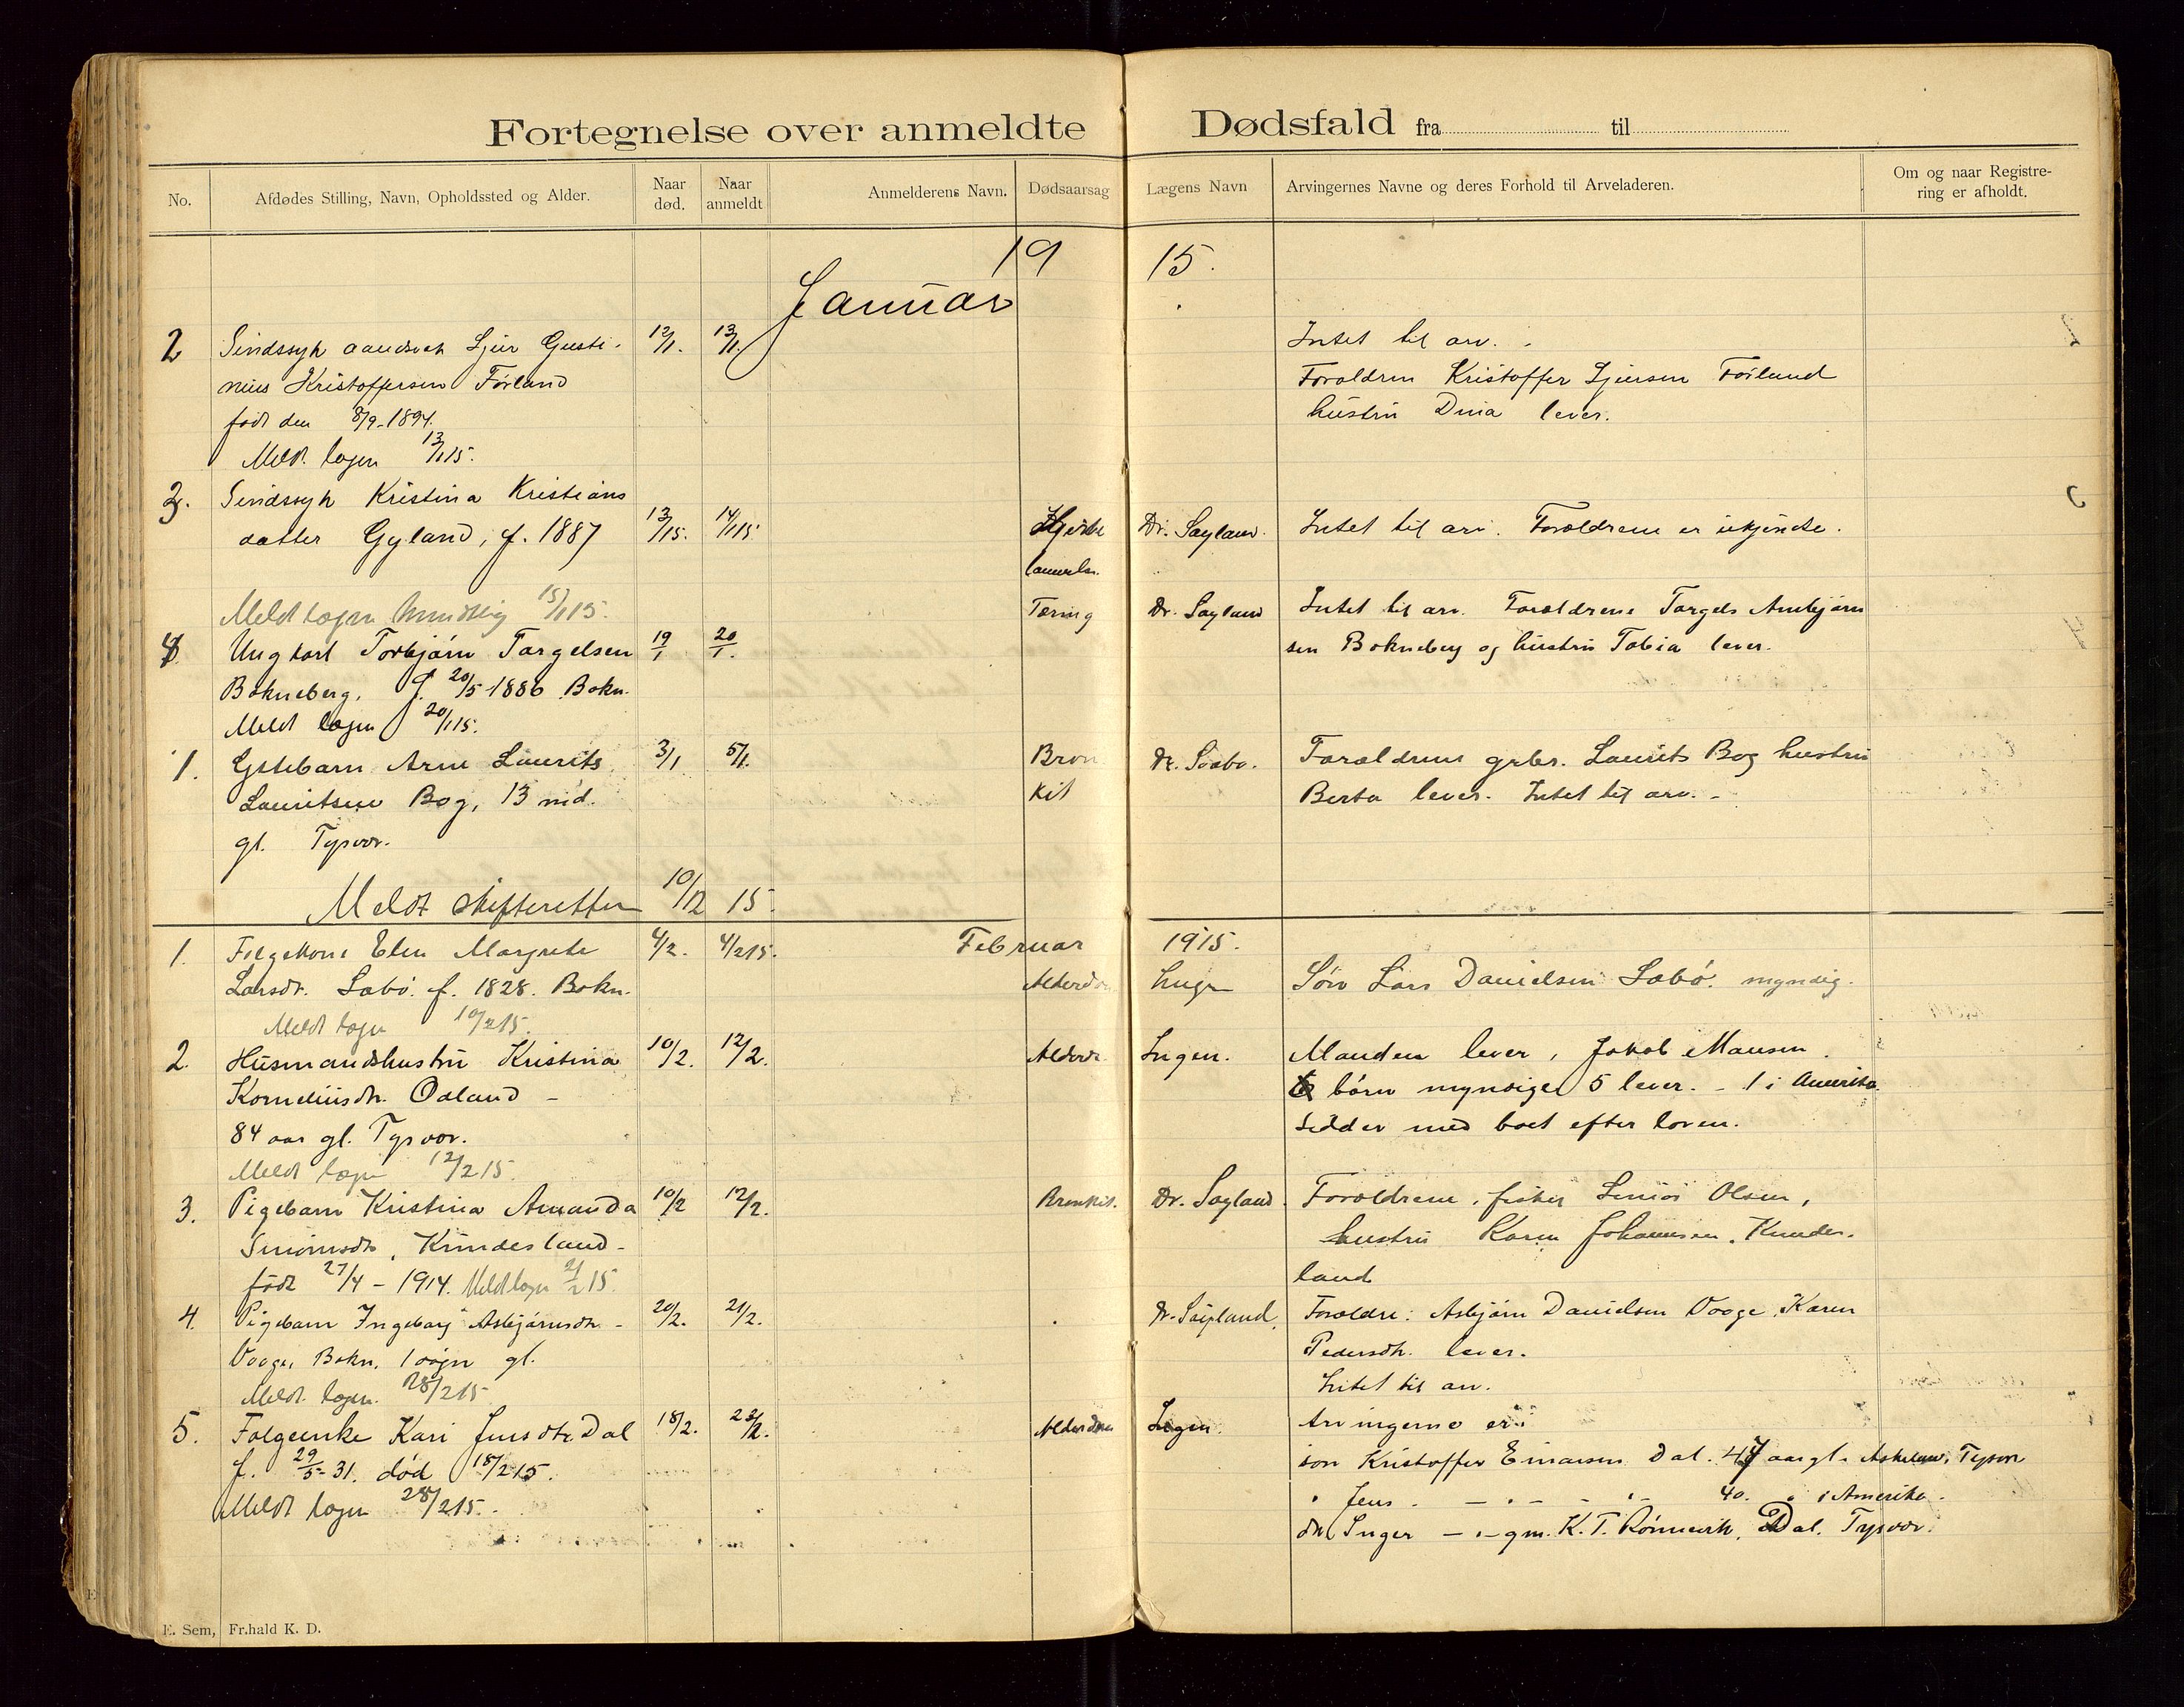 Fortegnelse over anmeldte Dødsfald fra til
No. Afdødes Stilling, Navn, Opholdssted og Alder. Naar død. Naar anmeldt Anmelderens Navn. Dødsaarsag Lægens Navn Arvingernes Navne og deres Forhold til Arveladeren. Om og naar Registrering er afholdt.
1915.
Januar
2 Sindssyk aandsvak Sjur Gusti- 12/1. 13/1. Intet til arv.
nius Kristoffersen Førland Forældren Kristoffer Sjursen Førland
født den 8/9-1894. hustru Dina lever.
Meldt lagen 13/1 15.
3. Sindssyk Kristina Kristians
datter Gyland, f. 1887 13/15. 14/1 15. Hjerte Dr. Søyland. Intet til arv. Forældrene er ukjendte.
lammelse.
Meldt lagen 15/1 15. Tæring Dr. Søyland Intet til arv. Forældrene Torgels Asbjørn
4. Ungkarl Torbjørn Torgelsen 19/1 20/1. sen Bokneberg og hustru Tobia lever.
Bokneberg. f. 20/5 1886 Bokn.
Meldt lagen 20/1 15.
1. Gutebarn Arne Laurits 3/1 5/1. Bron Dr. Svabo. Forældrene grbr. Laurits Bog hustru
Lauritsen Bog, 13 mnd. kit Berta lever. Intet til arv.
gl. Tysvær.
Meldt skifteretten 10/12 15.
Februar 1915.
1. Folgekone Elen Margrete 4/2. 4/2 15.
Larsdr. Søbø. f. 1828. Bokn. Alderdom Ingen Søn Lars Danielsen Søbø. myndig.
Meldt lagen 10/2 15.
2. Husmandshustru Kristina 10/2. 12/2. Alderd. Ingen. Manden lever, Jakob Mausen.
Korneliusdtr. Ødland - 6 børn myndige 5 lever. - 1 i Amerika.
84 aar gl. Tysvær. Sidder med boet efter loven.
Meldt lagen 12/2 15.
3. Pigebarn Kristina Amanda 10/2 12/2. Bronkit. Dr. Søyland. Forældrene, fisker Simon Olsen,
Simonsdtr, Kundesland - hustru Karen Johannesen. Kundes-
født 27/4 - 1914. Meldt lagen 21/2 15. land
4. Pigebarn Ingeborg Asbjørnsdtr - 20/2. 21/2. Dr. Søyland. Forældre: Asbjørn Danielsen Vaage, Karen
Vaage, Bokn, 1 døgn gl. Pedersdtr. lever.
Meldt lagen. 28/2 15 Intet til arv.
5. Folgeenke Kari Jensdtr. Dal 18/2. 23/2. Alderdom Ingen. Arvingerne er:
f. 29/5-31. død 18/2 15. søn Kristoffer Einarsen Dal. 47 aar gl. Askeland, Tysvær
Meldt lagen 28/2 15. " Jens - " - - " - 40. " i Amerika.
dtr Inger - " - gm. K. T. Rønnevik, Dal. Tysvær.
E. Sem, Fr.hald K. D.